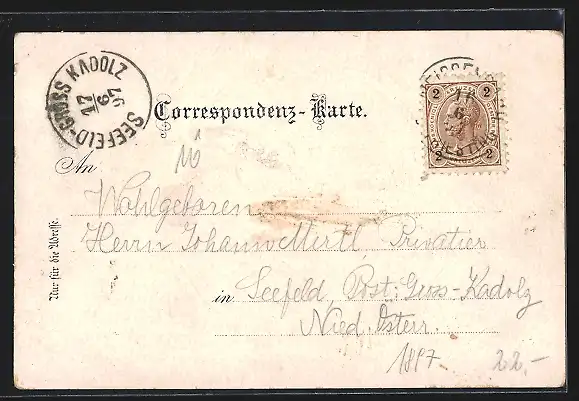 SEEFELD-GROSS KADOLZ
17
6
97
2 2
2 2
Correspondenz-Karte.
An
Wohlgeboren
Herrn Johann Mertl, Privatier
in Seefeld, Post: Gross-Kadolz
Nied. Österr.
Nur für die Adresse.
1897.
22.-